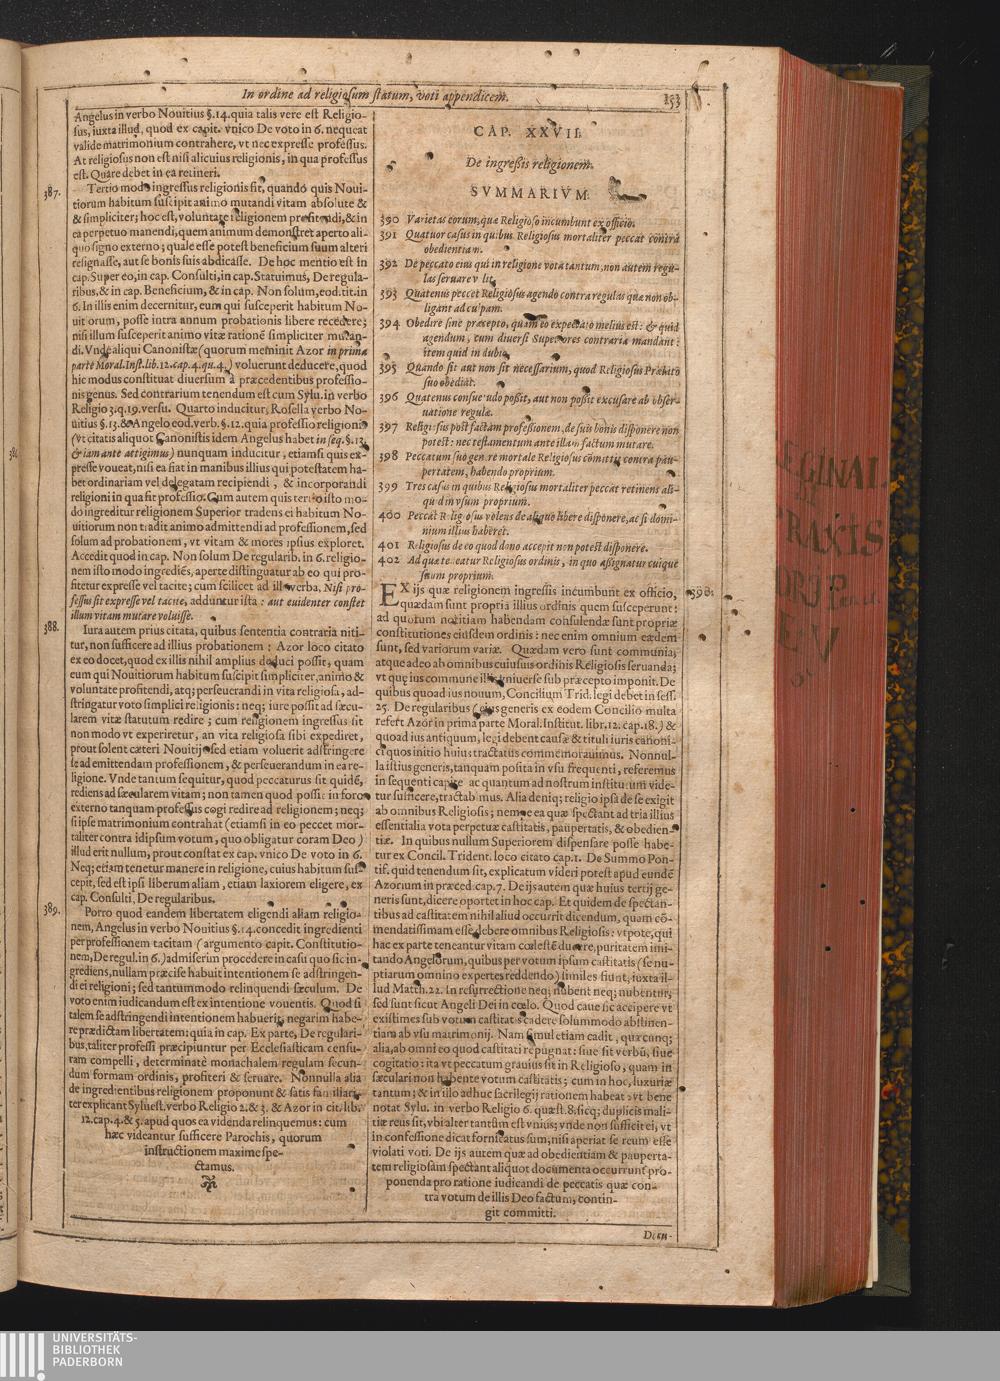 In ordine ad religiosum statum, voti appendicem. 153
Angelus in verbo Nouitius §.14. quia talis vere est Religio-
sus, iuxta illud, quod ex capit. vnico De voto in 6. nequeat
valide matrimonium contrahere, vt nec expresse professus.
At religiosus non est nisi alicuius religionis, in qua professus
est. Quare debet in ea retineri.
387. Tertio modo ingressus religionis fit, quando quis Noui-
tiorum habitum suscipit animo mutandi vitam absolute &
& simpliciter; hoc est, voluntate religionem profitendi, & in
ea perpetuo manendi, quem animum demonstret aperto ali-
quo signo externo; quale esse potest beneficium suum alteri
resignasse, aut se bonis suis abdicasse. De hoc mentio est in
cap. Super eo, in cap. Consulti, in cap. Statuimus, De regula-
ribus, & in cap. Beneficium, & in cap. Non solum, eod. tit. in
6. In illis enim decernitur, eum qui susceperit habitum No-
uitiorum, posse intra annum probationis libere recedere;
nisi illum susceperit animo vitæ rationē simpliciter mutan-
di. Vnde aliqui Canonistæ (quorum meminit Azor in prima
parte Moral. Inst. lib. 12. cap. 4. qu. 4.) voluerunt deducere, quod
hic modus constituat diuersum à præcedentibus professio-
nis genus. Sed contrarium tenendum est cum Sylu. in verbo
Religio 3. q. 19. versu. Quarto inducitur, Rosella verbo No-
uitius §.13. & Angelo eod. verb. §.12. quia professio religionis
(vt citatis aliquot Canonistis idem Angelus habet in seq. §.13.
& iam ante attigimus) nunquam inducitur, etiamsi quis ex-
presse voueat, nisi ea fiat in manibus illius qui potestatem ha-
bet ordinariam vel delegatam recipiendi, & incorporandi
religioni in qua fit professio. Cum autem quis tertio isto mo-
do ingreditur religionem Superior tradens ei habitum No-
uitiorum non tradit animo admittendi ad professionem, sed
solum ad probationem, vt vitam & mores ipsius exploret.
Accedit quod in cap. Non solum De regularib. in 6. religio-
nem isto modo ingrediēs, aperte distinguatur ab eo qui pro-
fitetur expresse vel tacite; cum scilicet ad illa verba, Nisi pro-
fessus sit expresse vel tacite, adduntur ista: aut euidenter constet
illum vitam mutare voluisse.
388. Iura autem prius citata, quibus sententia contraria niti-
tur, non sufficere ad illius probationem: Azor loco citato
ex eo docet, quod ex illis nihil amplius deduci possit, quam
eum qui Nouitiorum habitum suscipit simpliciter, animo &
voluntate profitendi, atq; perseuerandi in vita religiosa, ad-
stringatur voto simplici religionis: neq; iure possit ad sæcu-
larem vitæ statutum redire; cum religionem ingressus sit
non modo vt experiretur, an vita religiosa sibi expediret,
prout solent cæteri Nouitij, sed etiam voluerit adstringere
se ad emittendam professionem, & perseuerandum in ea re-
ligione. Vnde tantum sequitur, quod peccaturus sit quidē,
rediens ad sæcularem vitam; non tamen quod possit in foro
externo tanquam professus cogi redire ad religionem; neq;
si ipse matrimonium contrahat (etiamsi in eo peccet mor-
taliter contra idipsum votum, quo obligatur coram Deo)
illud erit nullum, prout constat ex cap. vnico De voto in 6.
Neq; etiam tenetur manere in religione, cuius habitum sus-
cepit, sed est ipsi liberum aliam, etiam laxiorem eligere, ex
cap. Consulti, De regularibus.
389. Porro quod eandem libertatem eligendi aliam religio-
nem, Angelus in verbo Nouitius §.14. concedit ingredienti
per professionem tacitam (argumento capit. Constitutio-
nem, De regul. in 6.) admiserim procedere in casu quo sic in-
grediens, nullam præcise habuit intentionem se adstringen-
di ei religioni; sed tantummodo relinquendi sæculum. De
voto enim iudicandum est ex intentione vouentis. Quod si
talem se adstringendi intentionem habuerit, negarim habe-
re prædictam libertatem: quia in cap. Ex parte, De regulari-
bus, taliter professi præcipiuntur per Ecclesiasticam censu-
ram compelli, determinatè monachalem regulam secun-
dum formam ordinis, profiteri & seruare. Nonnulla alia
de ingredientibus religionem proponunt & satis familiari-
ter explicant Syluest. verbo Religio 2. & 3. & Azor in cit. lib.
12. cap. 4. & 5. apud quos ea videnda relinquemus: cum
hæc videantur sufficere Parochis, quorum
instructionem maxime spe-
ctamus.
CAP. XXVII.
De ingressis religionem.
SVMMARIVM.
390 Varietas eorum, quæ Religioso incumbunt ex officio.
391 Quatuor casus in quibus Religiosus mortaliter peccat contra
obedientiam.
392 De peccato eius qui in religione vota tantum, non autem regu-
las seruare vlit.
393 Quatenus peccet Religiosus agendo contra regulas quæ non ob-
ligant ad culpam.
394 Obedire sine præcepto, quam eo expectato melius est: & quid
agendum, cum diuersi Superiores contraria mandant:
item quid in dubio.
395 Quando sit aut non sit necessarium, quod Religiosus Prælato
suo obediat.
396 Quatenus consuetudo possit, aut non possit excusare ab obser-
uatione regulæ.
397 Religiosus post factam professionem, de suis bonis disponere non
potest: nec testamentum ante illam factum mutare.
398 Peccatum suo genere mortale Religiosus committit contra pau-
pertatem, habendo proprium.
399 Tres casus in quibus Religiosus mortaliter peccat retinens ali-
quid in vsum proprium.
400 Peccat Religiosus volens de aliquo libere disponere, ac si domi-
nium illius haberet.
401 Religiosus de eo quod dono accepit non potest disponere.
402 Ad quæ teneatur Religiosus ordinis, in quo assignatur cuique
suum proprium.
390. EX ijs quæ religionem ingressis incumbunt ex officio,
quædam sunt propria illius ordinis quem susceperunt:
ad quorum notitiam habendam consulendæ sunt propriæ
constitutiones eiusdem ordinis: nec enim omnium eædem
sunt, sed variorum variæ. Quædam vero sunt communia,
atque adeo ab omnibus cuiusuis ordinis Religiosis seruanda;
vt quæ ius commune illis vniuerse sub præcepto imponit. De
quibus quoad ius nouum, Concilium Trid. legi debet in sess.
25. De regularibus (eius generis ex eodem Concilio multa
refert Azor in prima parte Moral. Institut. libr. 12. cap. 18.) &
quoad ius antiquum, legi debent causæ & tituli iuris canoni-
ci quos initio huius tractatus commemorauimus. Nonnul-
la istius generis, tanquam posita in vsu frequenti, referemus
in sequenti capite ac quantum ad nostrum institutum vide-
tur sufficere, tractabimus. Alia deniq; religio ipsa de se exigit
ab omnibus Religiosis; nempe ea quæ spectant ad tria illius
essentialia vota perpetuæ castitatis, paupertatis, & obedien-
tiæ. In quibus nullum Superiorem dispensare posse habe-
tur ex Concil. Trident. loco citato cap. 1. De Summo Pon-
tif. quid tenendum sit, explicatum videri potest apud eundē
Azorium in præced. cap. 7. De ijs autem quæ huius tertij ge-
neris sunt, dicere oportet in hoc cap. Et quidem de spectan-
tibus ad castitatem nihil aliud occurrit dicendum, quam cō-
mendatissimam esse debere omnibus Religiosis: vtpote, qui
hac ex parte teneantur vitam cœlestē ducere, puritatem imi-
tando Angelorum, quibus per votum ipsum castitatis (se nu-
ptiarum omnino expertes reddendo) similes fiunt, iuxta il-
lud Matth. 22. In resurrectione neq; nubent neq; nubentur,
sed sunt sicut Angeli Dei in cœlo. Quod caue sic accipere vt
existimes sub votum castitatis cadere solummodo abstinen-
tiam ab vsu matrimonij. Nam simul etiam cadit, quæcunq;
alia, ab omni eo quod castitati repugnat: siue sit verbū, siue
cogitatio: ita vt peccatum grauius sit in Religioso, quam in
sæculari non habente votum castitatis; cum in hoc, luxuriæ
tantum; & in illo adhuc sacrilegij rationem habeat vt bene
notat Sylu. in verbo Religio 6. quæst. 8. sicq; duplicis mali-
tiæ reus sit, vbi alter tantum est vnius; vnde non sufficit ei, vt
in confessione dicat fornicatus sum, nisi aperiat se reum esse
violati voti. De ijs autem quæ ad obedientiam & pauperta-
tem religiosam spectant aliquot documenta occurrunt pro-
ponenda pro ratione iudicandi de peccatis quæ con-
tra votum de illis Deo factum, contin-
git committi.
UNIVERSITÄTS-
BIBLIOTHEK
PADERBORN